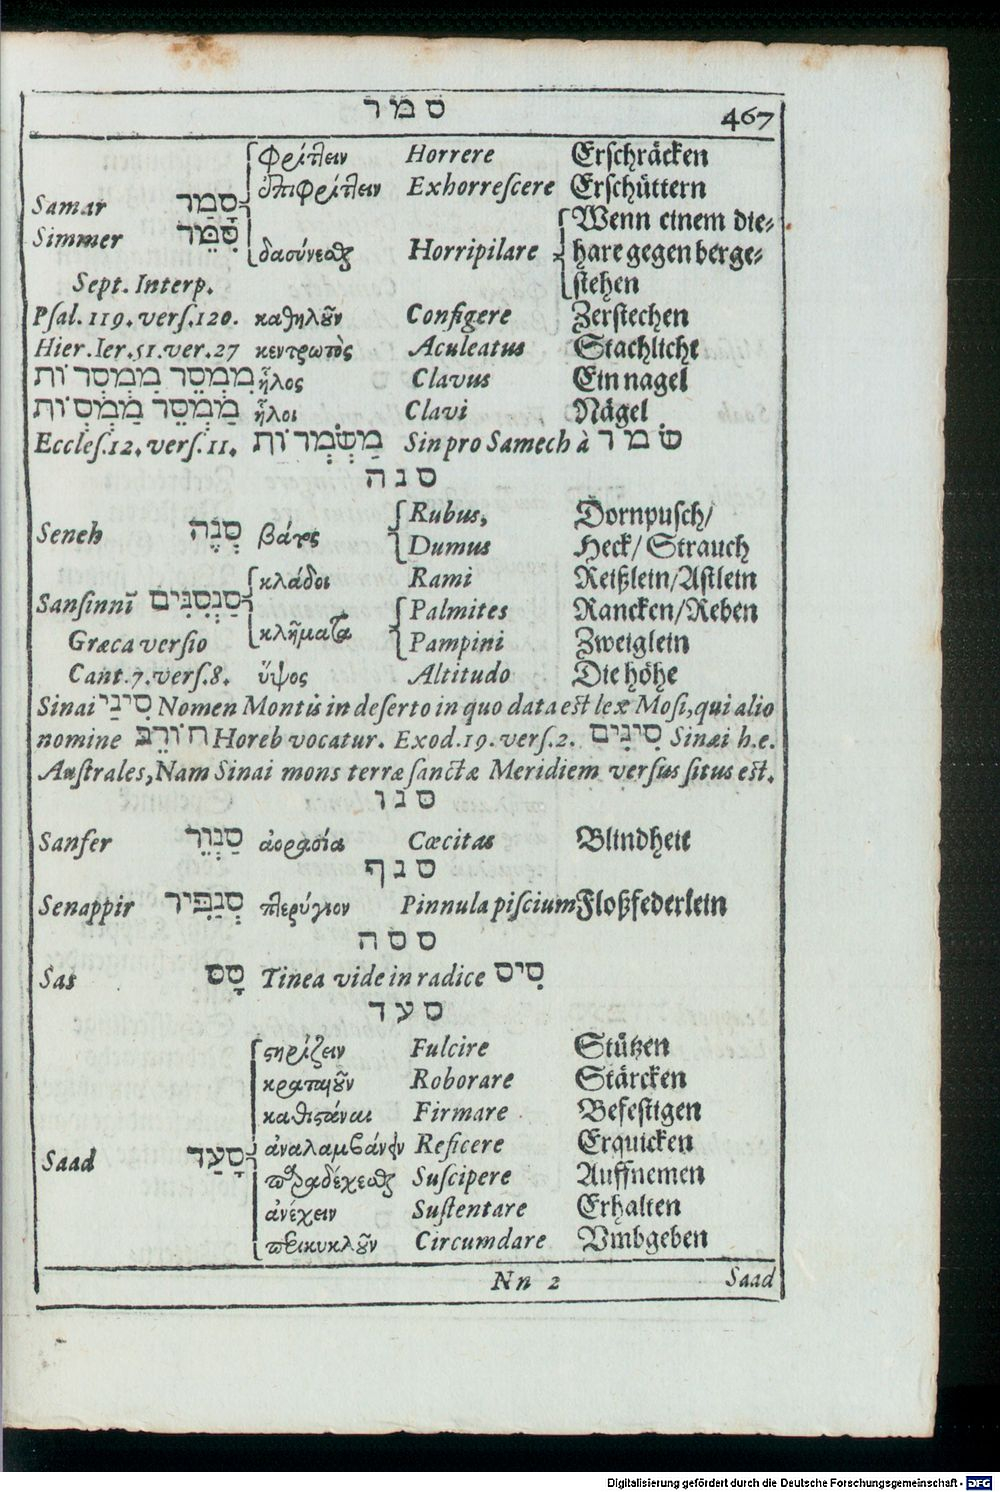 סמר 467
φρίττειν Horrere Erschräcken
Samar סָמַר ἐπιφρίττειν Exhorrescere Erschüttern
Wenn einem die⸗
Simmer סִמֵּר δασύνεσθαι Horripilare hare gegen berge⸗
stehen
Sept. Interp.
Psal. 119. vers. 120. καθηλοῦν Configere Zerstechen
Hier. Ier. 51. ver. 27 κεντρωτὸς Aculeatus Stachlicht
מַסְמֵר מַסְמְרוֹת ἧλος Clavus Ein nagel
ἧλοι Clavi Nägel
Eccles. 12. vers. 11. מַשְׂמְרוֹת Sin pro Samech à שׂמר
סנה
Seneh סְנֶה βάτος Rubus, Dornpusch/
Dumus Heck/ Strauch
κλάδοι Rami Reißlein/Astlein
Sansinnī סַנְסִנִּים Palmites Rancken/Reben
Græca versio κλήματα Pampini Zweiglein
Cant. 7. vers. 8. ὕψος Altitudo Die höhe
Sinai סִינַי Nomen Montis in deserto in quo data est lex Mosi, qui alio
nomine חוֹרֵב Horeb vocatur. Exod. 19. vers. 2. סִינִים Sinæi h.e.
Australes, Nam Sinai mons terræ sanctæ Meridiem versus situs est.
סנו
Sanfer סַנְוֵר ἀορασία Cœcitas Blindheit
סנף
Senappir סְנַפִּיר πτερύγιον Pinnula piscium Floßfederlein
ססה
Sas סָס Tinea vide in radice סִיס
סעד
στηρίζειν Fulcire Stützen
κραταιοῦν Roborare Stärcken
καθιστάναι Firmare Befestigen
ἀναλαμβάνειν Reficere Erquicken
Saad סָעַד παραδέχεσθαι Suscipere Auffnemen
ἀνέχειν Sustentare Erhalten
περικυκλοῦν Circumdare Vmbgeben
Nn 2 Saad
Digitalisierung gefördert durch die Deutsche Forschungsgemeinschaft - DFG